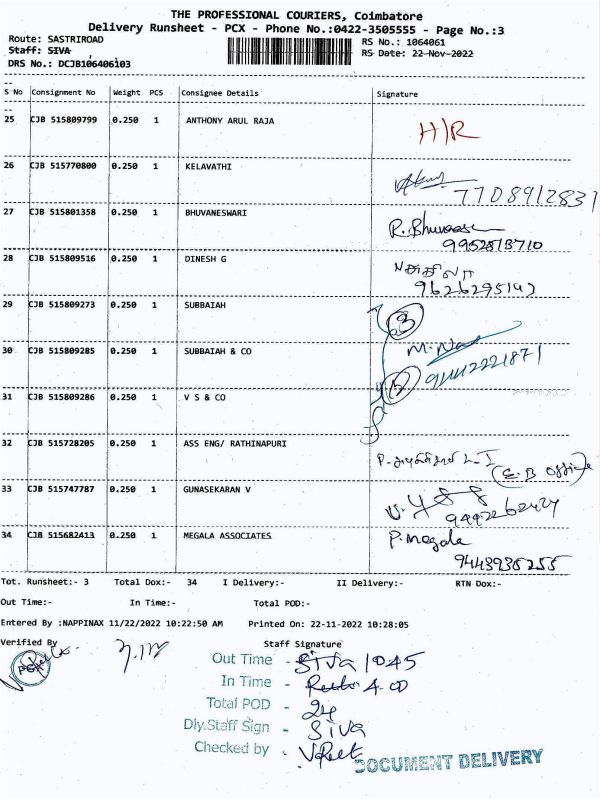 THE PROFESSIONAL COURIERS, Coimbatore
Delivery Runsheet - PCX - Phone No.:0422-3505555 - Page No.:3
Route: SASTRIROAD
RS No.: 1064061
Staff: SIVA
RS Date: 22-Nov-2022
DRS No.: DCJB106406103
S No Consignment No Weight PCS Consignee Details Signature
25 CJB 515809799 0.250 1 ANTHONY ARUL RAJA H/R
26 CJB 515770800 0.250 1 KELAVATHI 7708912831
27 CJB 515801358 0.250 1 BHUVANESWARI R.
28 CJB 515809516 0.250 1 DINESH G
29 CJB 515809273 0.250 1 SUBBAIAH 3
30 CJB 515809285 0.250 1 SUBBAIAH & CO 9442221871
31 CJB 515809286 0.250 1 V S & CO
32 CJB 515728205 0.250 1 ASS ENG/ RATHINAPURI (E.B Office
33 CJB 515747787 0.250 1 GUNASEKARAN V
34 CJB 515682413 0.250 1 MEGALA ASSOCIATES P. Megala
Tot. Runsheet:- 3 Total Dox:- 34 I Delivery:- II Delivery:- RTN Dox:-
Out Time:- In Time:- Total POD:-
Entered By :NAPPINAX 11/22/2022 10:22:50 AM Printed On: 22-11-2022 10:28:05
Verified By Staff Signature
Out Time - Siva 10.45
In Time - 4.00
Total POD - 24
Dly.Staff Sign - Siva
Checked by -
DOCUMENT DELIVERY